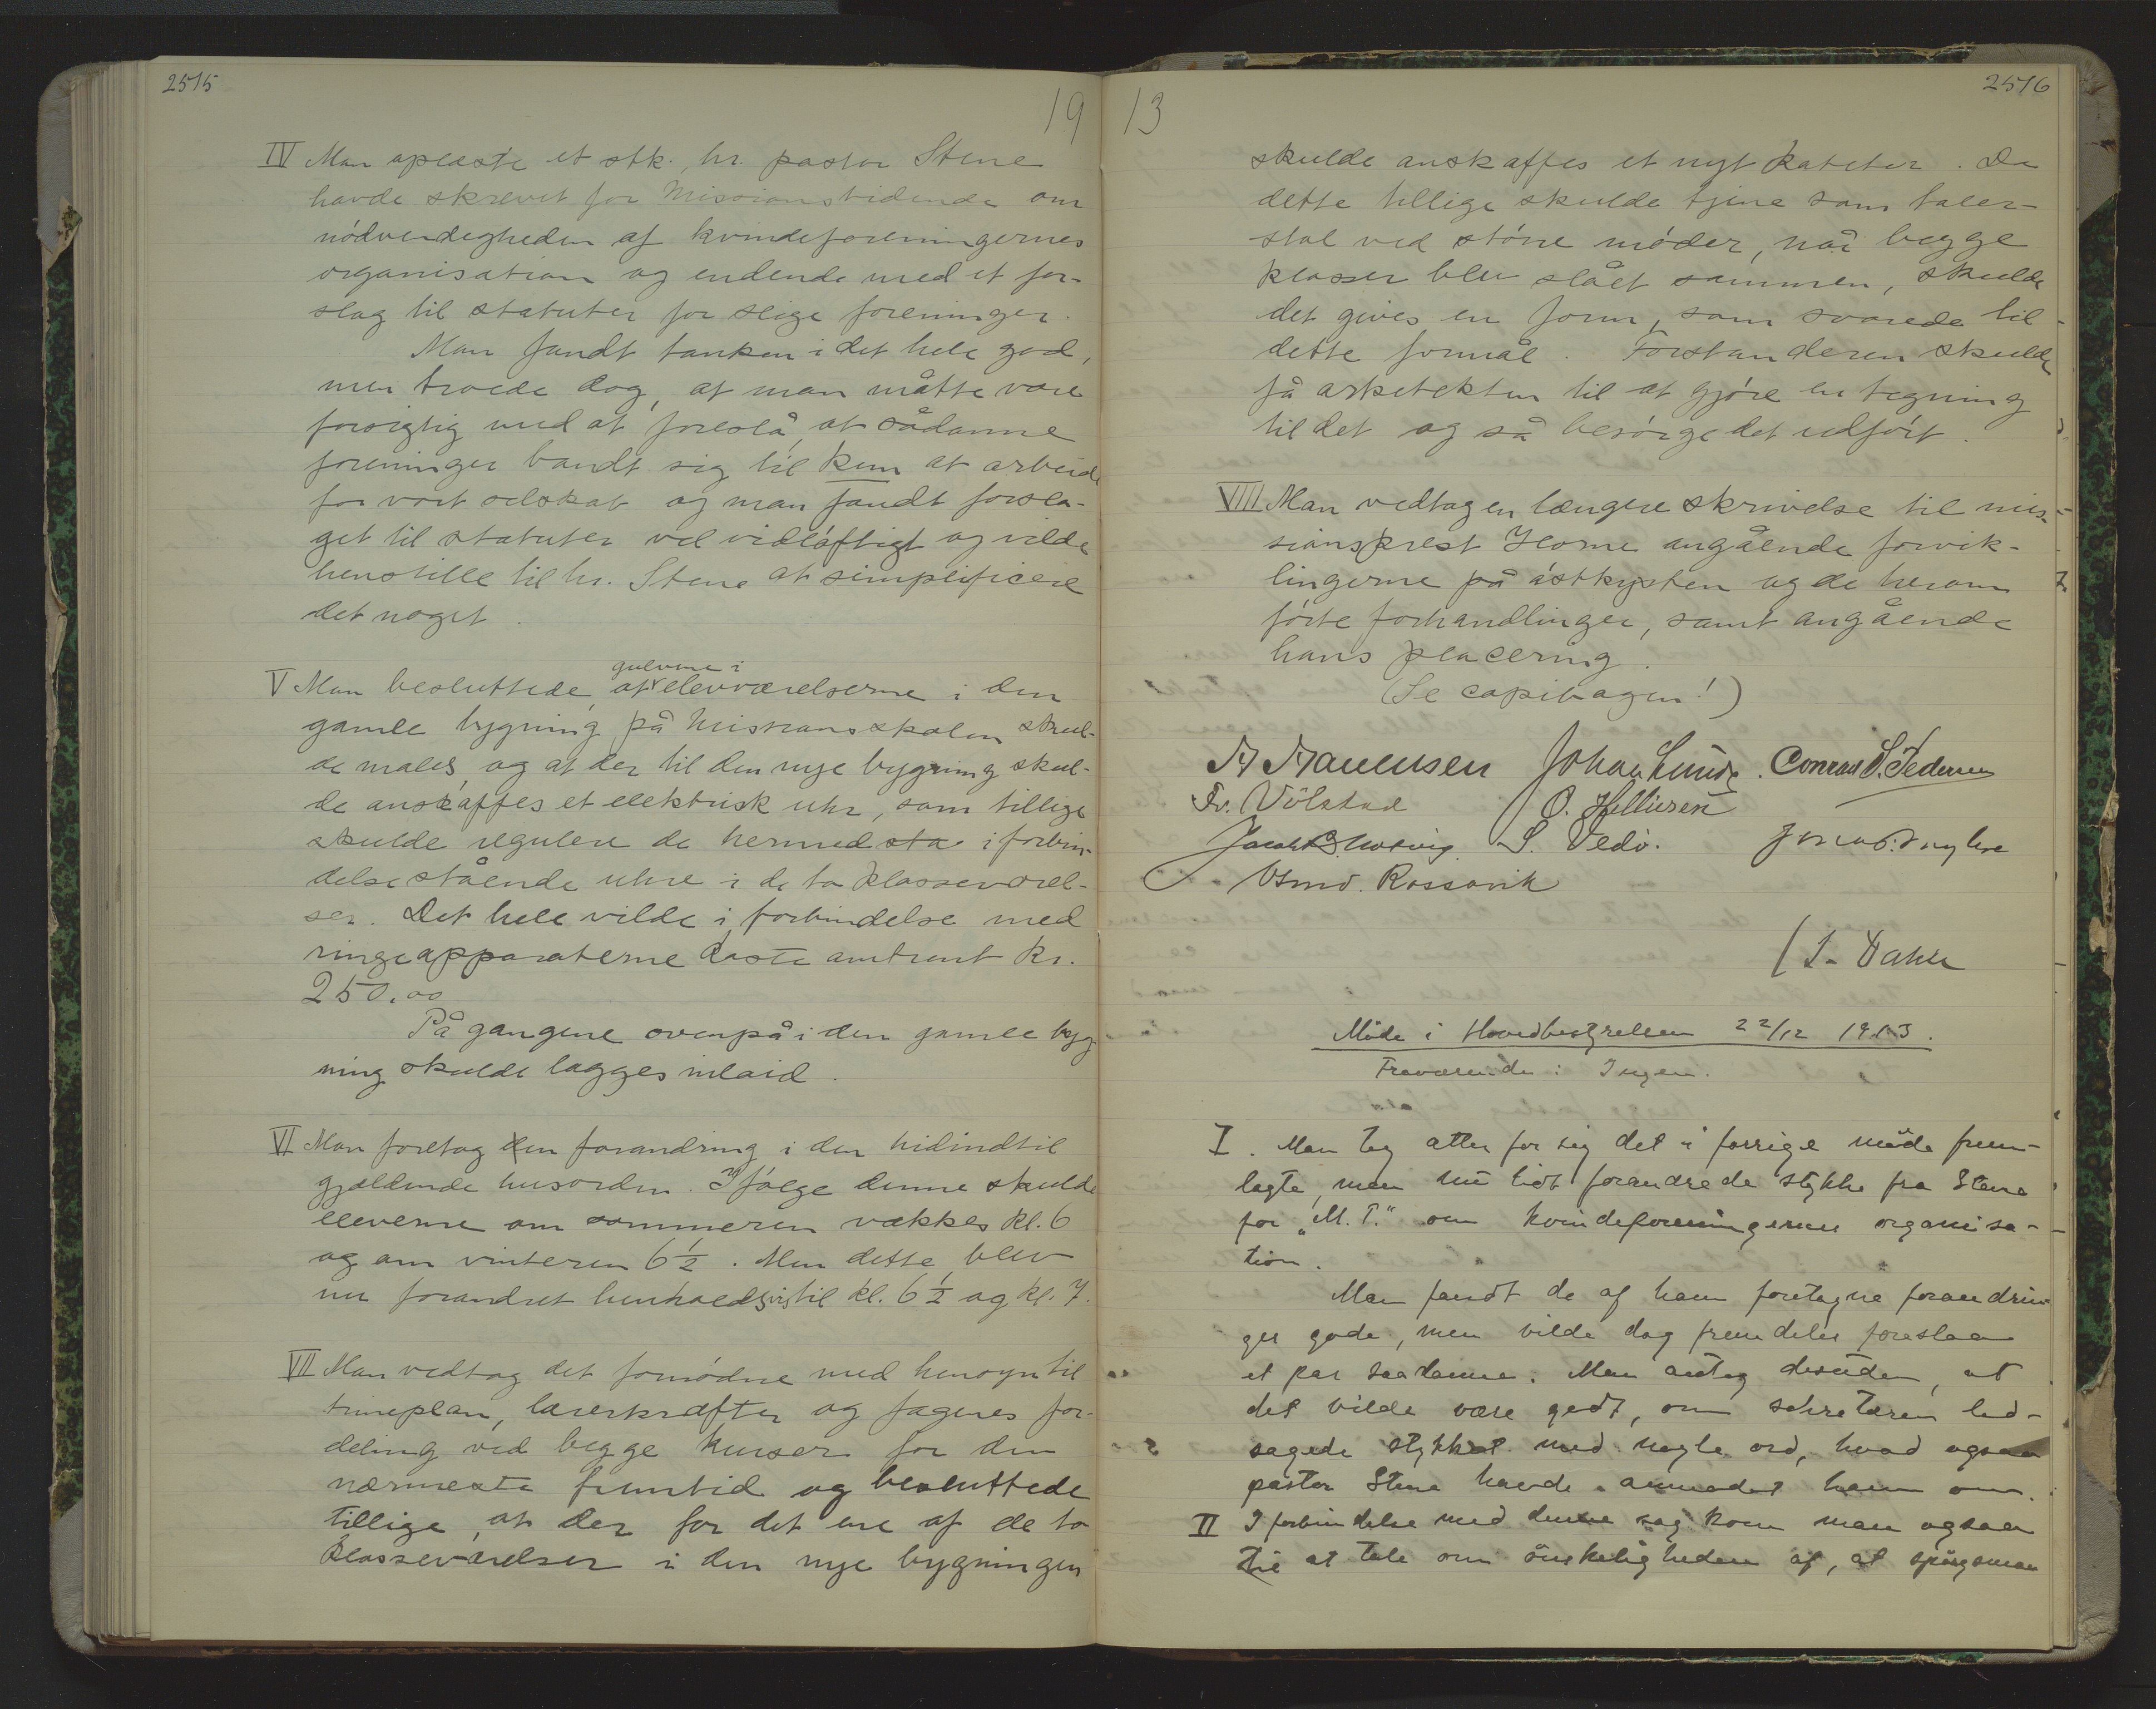 2515
19
IV Man oplæste et stk. hr. pastor Stene
havde skrevet for Missionstidende om
nødvendigheden af kvindeforeningernes
organisation og endende med et for-
slag til statuter for slige foreninger.
Man fandt tanken i det hele god,
men troede dog, at man måtte være
forsigtig med at foreslå, at sådanne
foreninger bandt sig til kun at arbeide
for vort selskab og man fandt forsla-
get til statuter vel vidløftigt og vilde
henstille til hr. Stene at simplificere
det noget.
gulvene i
V Man besluttede, at elevværelserne i den
gamle bygning på Missionsskolen skul-
de males, og at der til den nye bygning skul-
de anskaffes et elektrisk uhr, som tillige
skulde regulere de hermed sta i forbin-
delse stående uhre i de to klasseværel-
ser. Det hele vilde i forbindelse med
ringeapparaterne koste omtrent kr.
250.00
På gangene ovenpå i den gamle byg
ning skulde lægges inlaid.
VI Man foretog den forandring i den hidindtil
gjældende husorden. Ifølge denne skulde
eleverne om sommeren vækkes kl. 6
og om vinteren 6 ½. Men dette blev
nu forandret henholdsvis til kl. 6 ½ og kl. 7.
VII Man vedtog det fornødne med hensyn til
timeplan, lærerkræfter og fagenes for-
deling ved begge kurser for den
nærmeste fremtid og besluttede
tillige, at der for det ene af de to
klasseværelser i den nye bygningen
13
2516
skulde anskaffes et nyt kateter. Da
dette tillige skulde tjene som taler-
stol ved større møder, når begge
klasser blev slået sammen, skulde
det gives en form, som svarede til
dette formål. Forstanderen skulde
få arkitekten til at gjøre en tegning
til det og så besørge det udført.
VIII Man vedtog en længere skrivelse til mis-
sionsprest Horne angående forvik-
lingerne på østkysten og de herom
førte forhandlinger, samt angående
hans placering.
(Se copibogen!)
Johan Lunde. Conrad S. Pedersen
Fr. Völstad O. Hellliesen
S. Vedø.
Osmd. Rossavik
/ L. Dahle
Møde i Hovedbestyrelsen 22/12 1913.
Fraværende: Ingen.
I. Man tog atter for sig det i forrige møde frem-
lagte, men nu lidt forandrede stykke fra Stene
for "M. T." om kvindeforeningernes organisa-
tion.
Man fandt de af ham foretagne forandrin-
ger gode, men vilde dog fremdeles foreslaa
et par saadanne. Man antog desuden, at
det vilde være godt, om sekretæren led-
sagede stykket med nogle ord, hvad ogsaa
pastor Stene havde anmodet ham om.
II I forbindelse med denne sag kom man ogsaa
til at tale om ønskeligheden af, at spørgsmaa